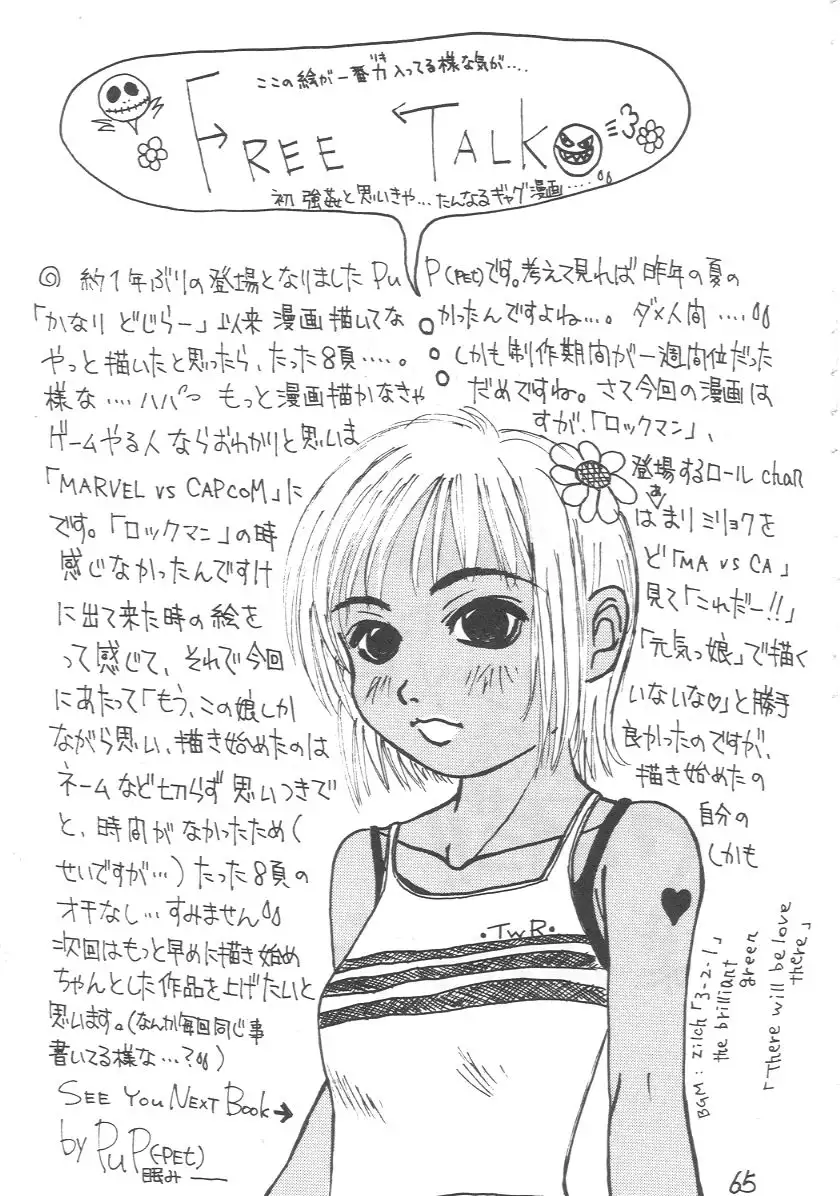 ここの絵が一番力入ってる様な気が....
FREE TALK
初 強姦と思いきや...たんなるギャグ漫画....
◎ 約1年ぶりの登場となりました PuP(PEt)です。考えて見れば昨年の夏の
「かなり どじらー」以来 漫画描いてな かったんですよね...。ダメ人間....
やっと描いたと思ったら、たった8頁....。 しかも制作期間が一週間位だった
様な....ハハハ もっと漫画描かなきゃ だめですね。さて今回の漫画は
ゲームやる人ならおわかりと思いま すが、「ロックマン」、
「MARVEL vs CAPCOM」に 登場するロール chan
です。「ロックマン」の時 はあまりミリョクを
感じなかったんですけ ど「MA vs CA」
に出て来た時の絵を 見て「これだー!!」
って感じて、それで今回 「元気っ娘」で描く
にあたって「もう、この娘しか いないな♡」と勝手
ながら思い、描き始めたのは 良かったのですが、
ネームなど切らず思いつきで 描き始めたの
と、時間がなかったため( 自分の
せいですが...)たった8頁の しかも
オチなし...すみません
次回はもっと早めに描き始め
ちゃんとした作品を上げたいと
思います。(なんか毎回同じ事
書いてる様な...?)
SEE YOU NEXT BOOK→
by PuP(-PEt)
眠み
・TWR・
BGM: zilch「3-2-1」
the brilliant green
「There will be love there」
65